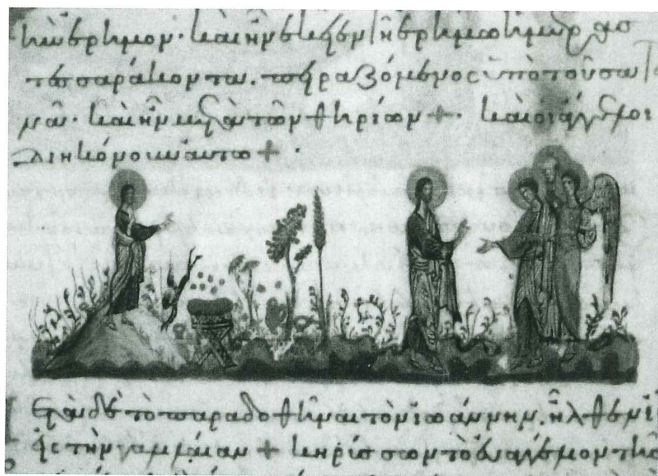 τὴν ἔρημον· καὶ ἦν ἐκεῖ ἐν τῇ ἐρήμω ἡμέρας
τεσσαράκοντα. πειραζόμενος ὑπὸ τοῦ σατα
νᾶ· καὶ ἦν μετὰ τῶν θηρίων +· καὶ οἱ ἄγγελοι
διηκόνουν αυτω + ·
δὲ τὸ παραδοθῆναι τὸν ἰωάννην. ἦλθεν
εἰς τὴν γαλιλαίαν + κηρύσσων τὸ εὐαγγέλιον